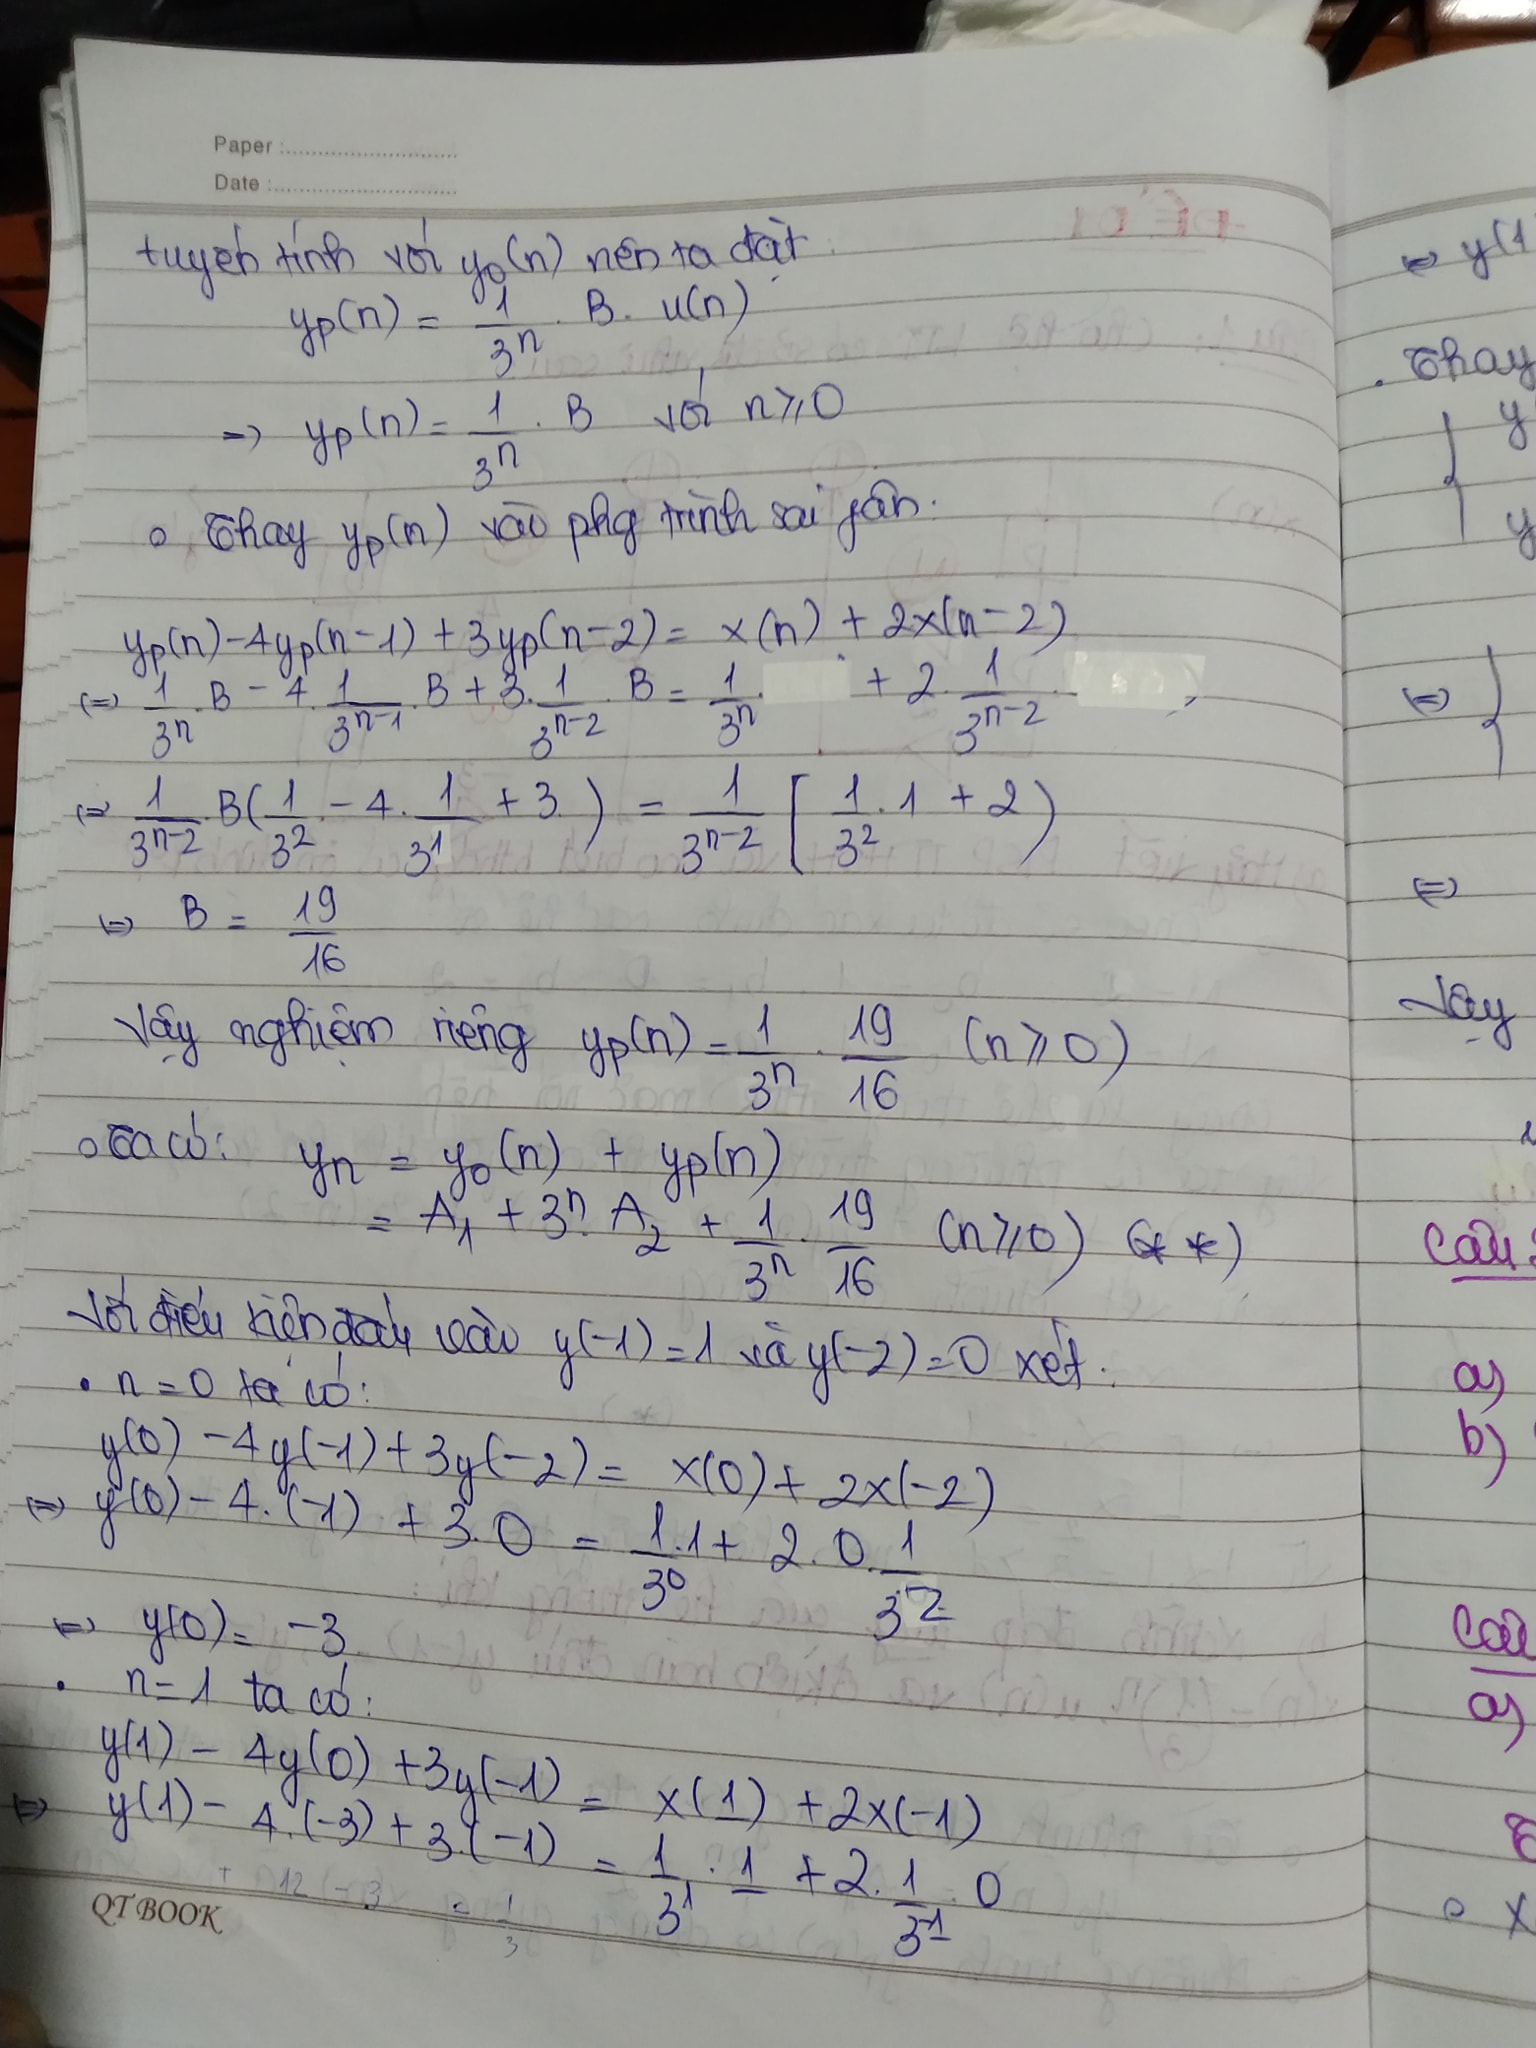 Paper :
Date :
tuyến tính với y₀(n) nên ta đặt:
yp(n) = 1/3ⁿ . B. u(n)
=> yp(n) = 1/3ⁿ . B với n ≥ 0
o Thay yp(n) vào phg trình sai phân.
yp(n) - 4yp(n-1) + 3yp(n-2) = x(n) + 2x(n-2)
<=> 1/3ⁿ . B - 4. 1/3ⁿ⁻¹ . B + 3. 1/3ⁿ⁻² . B = 1/3ⁿ . + 2. 1/3ⁿ⁻² .
<=> 1/3ⁿ⁻² . B( 1/3² - 4. 1/3¹ + 3 ) = 1/3ⁿ⁻² [ 1/3² . 1 + 2 )
<=> B = 19/16
Vậy nghiệm riêng yp(n) = 1/3ⁿ . 19/16 (n ≥ 0)
o Ta có: yn = y₀(n) + yp(n)
= A₁ + 3ⁿ. A₂ + 1/3ⁿ . 19/16 (n ≥ 0) (**)
Với điều kiện đầu vào y(-1) = 1 và y(-2) = 0 xét.
. n = 0 ta có:
y(0) - 4y(-1) + 3y(-2) = x(0) + 2x(-2)
<=> y(0) - 4.(-1) + 3.0 = 1/3⁰ . 1 + 2. 0. 1/3⁻²
<=> y(0) = -3
. n = 1 ta có:
y(1) - 4y(0) + 3y(-1) = x(1) + 2x(-1)
<=> y(1) - 4.(-3) + 3.(-1) = 1/3¹ . 1 + 2. 1/3⁻¹ . 0
+ 12 (-3 = 1/3
QT BOOK
<=> y(1
. Thay
y
y
<=>
<=>
Vậy
Câu
a)
b)
Câu
a)
o x